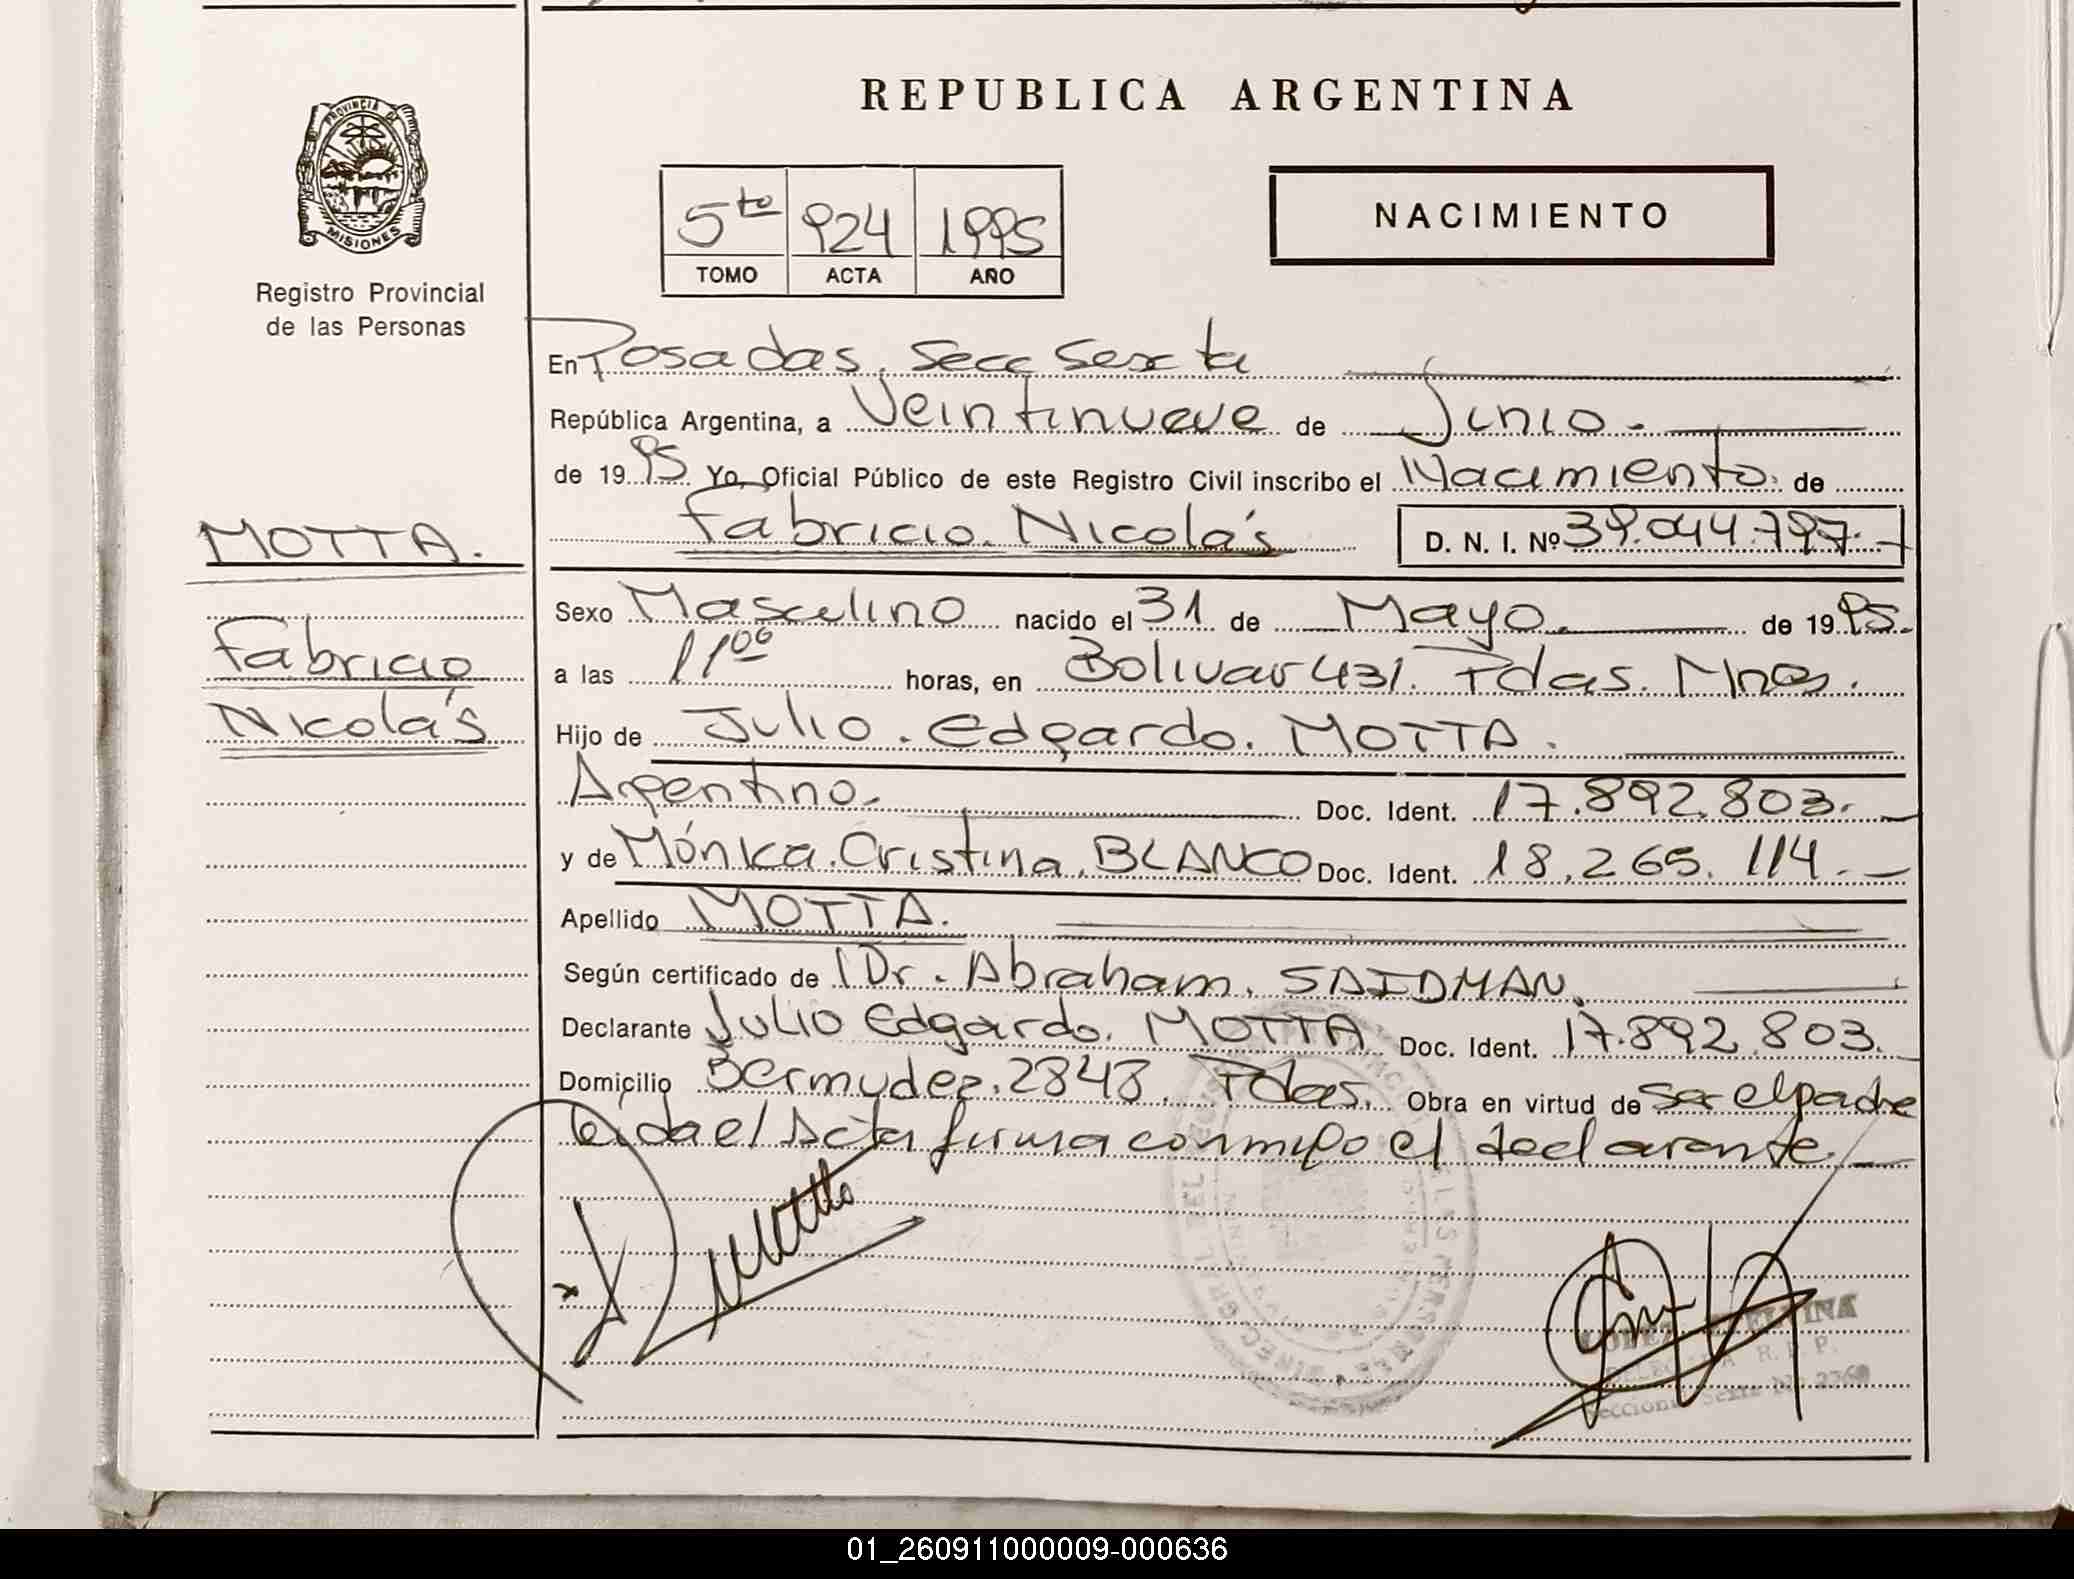 REPUBLICA ARGENTINA
PROVINCIA DE
MISIONES
Registro Provincial
de las Personas
5to 924 1995
TOMO ACTA AÑO
NACIMIENTO
En Posadas, Secc Sexta
República Argentina, a Veintinueve de Junio.
de 1995 Yo, Oficial Público de este Registro Civil inscribo el Nacimiento. de
Fabricio. Nicolás D. N. I. Nº 39.044.797.
MOTTA.
Fabricio
Nicolás
Sexo Masculino nacido el 31 de Mayo. de 1995.
a las 11 00 horas, en Bolivar 431. Pdas. Mnes.
Hijo de Julio. Edgardo. MOTTA.
Argentino. Doc. Ident. 17.892.803.
y de Mónica. Cristina. BLANCO Doc. Ident. 18.265.114.
Apellido MOTTA.
Según certificado de Dr. Abraham. SAIDMAN.
Declarante Julio Edgardo. MOTTA Doc. Ident. 17.892.803.
Domicilio Bermudez. 2848. Pdas. Obra en virtud de ser el padre
Leida el Acta firma conmigo el declarante.
R. P. P.
Seccional Sexta
01_260911000009-000636